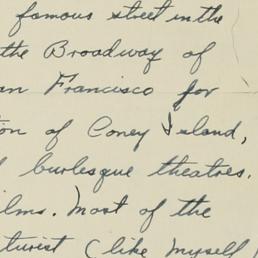 famous street in the
the Broadway of
an Francisco for
ion of Coney Island,
burlesque theatres.
ilms. Most of the
turist (like myself)